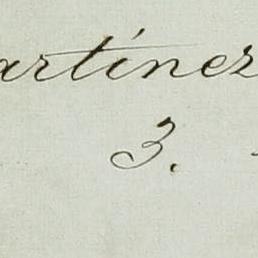 artínez
3.